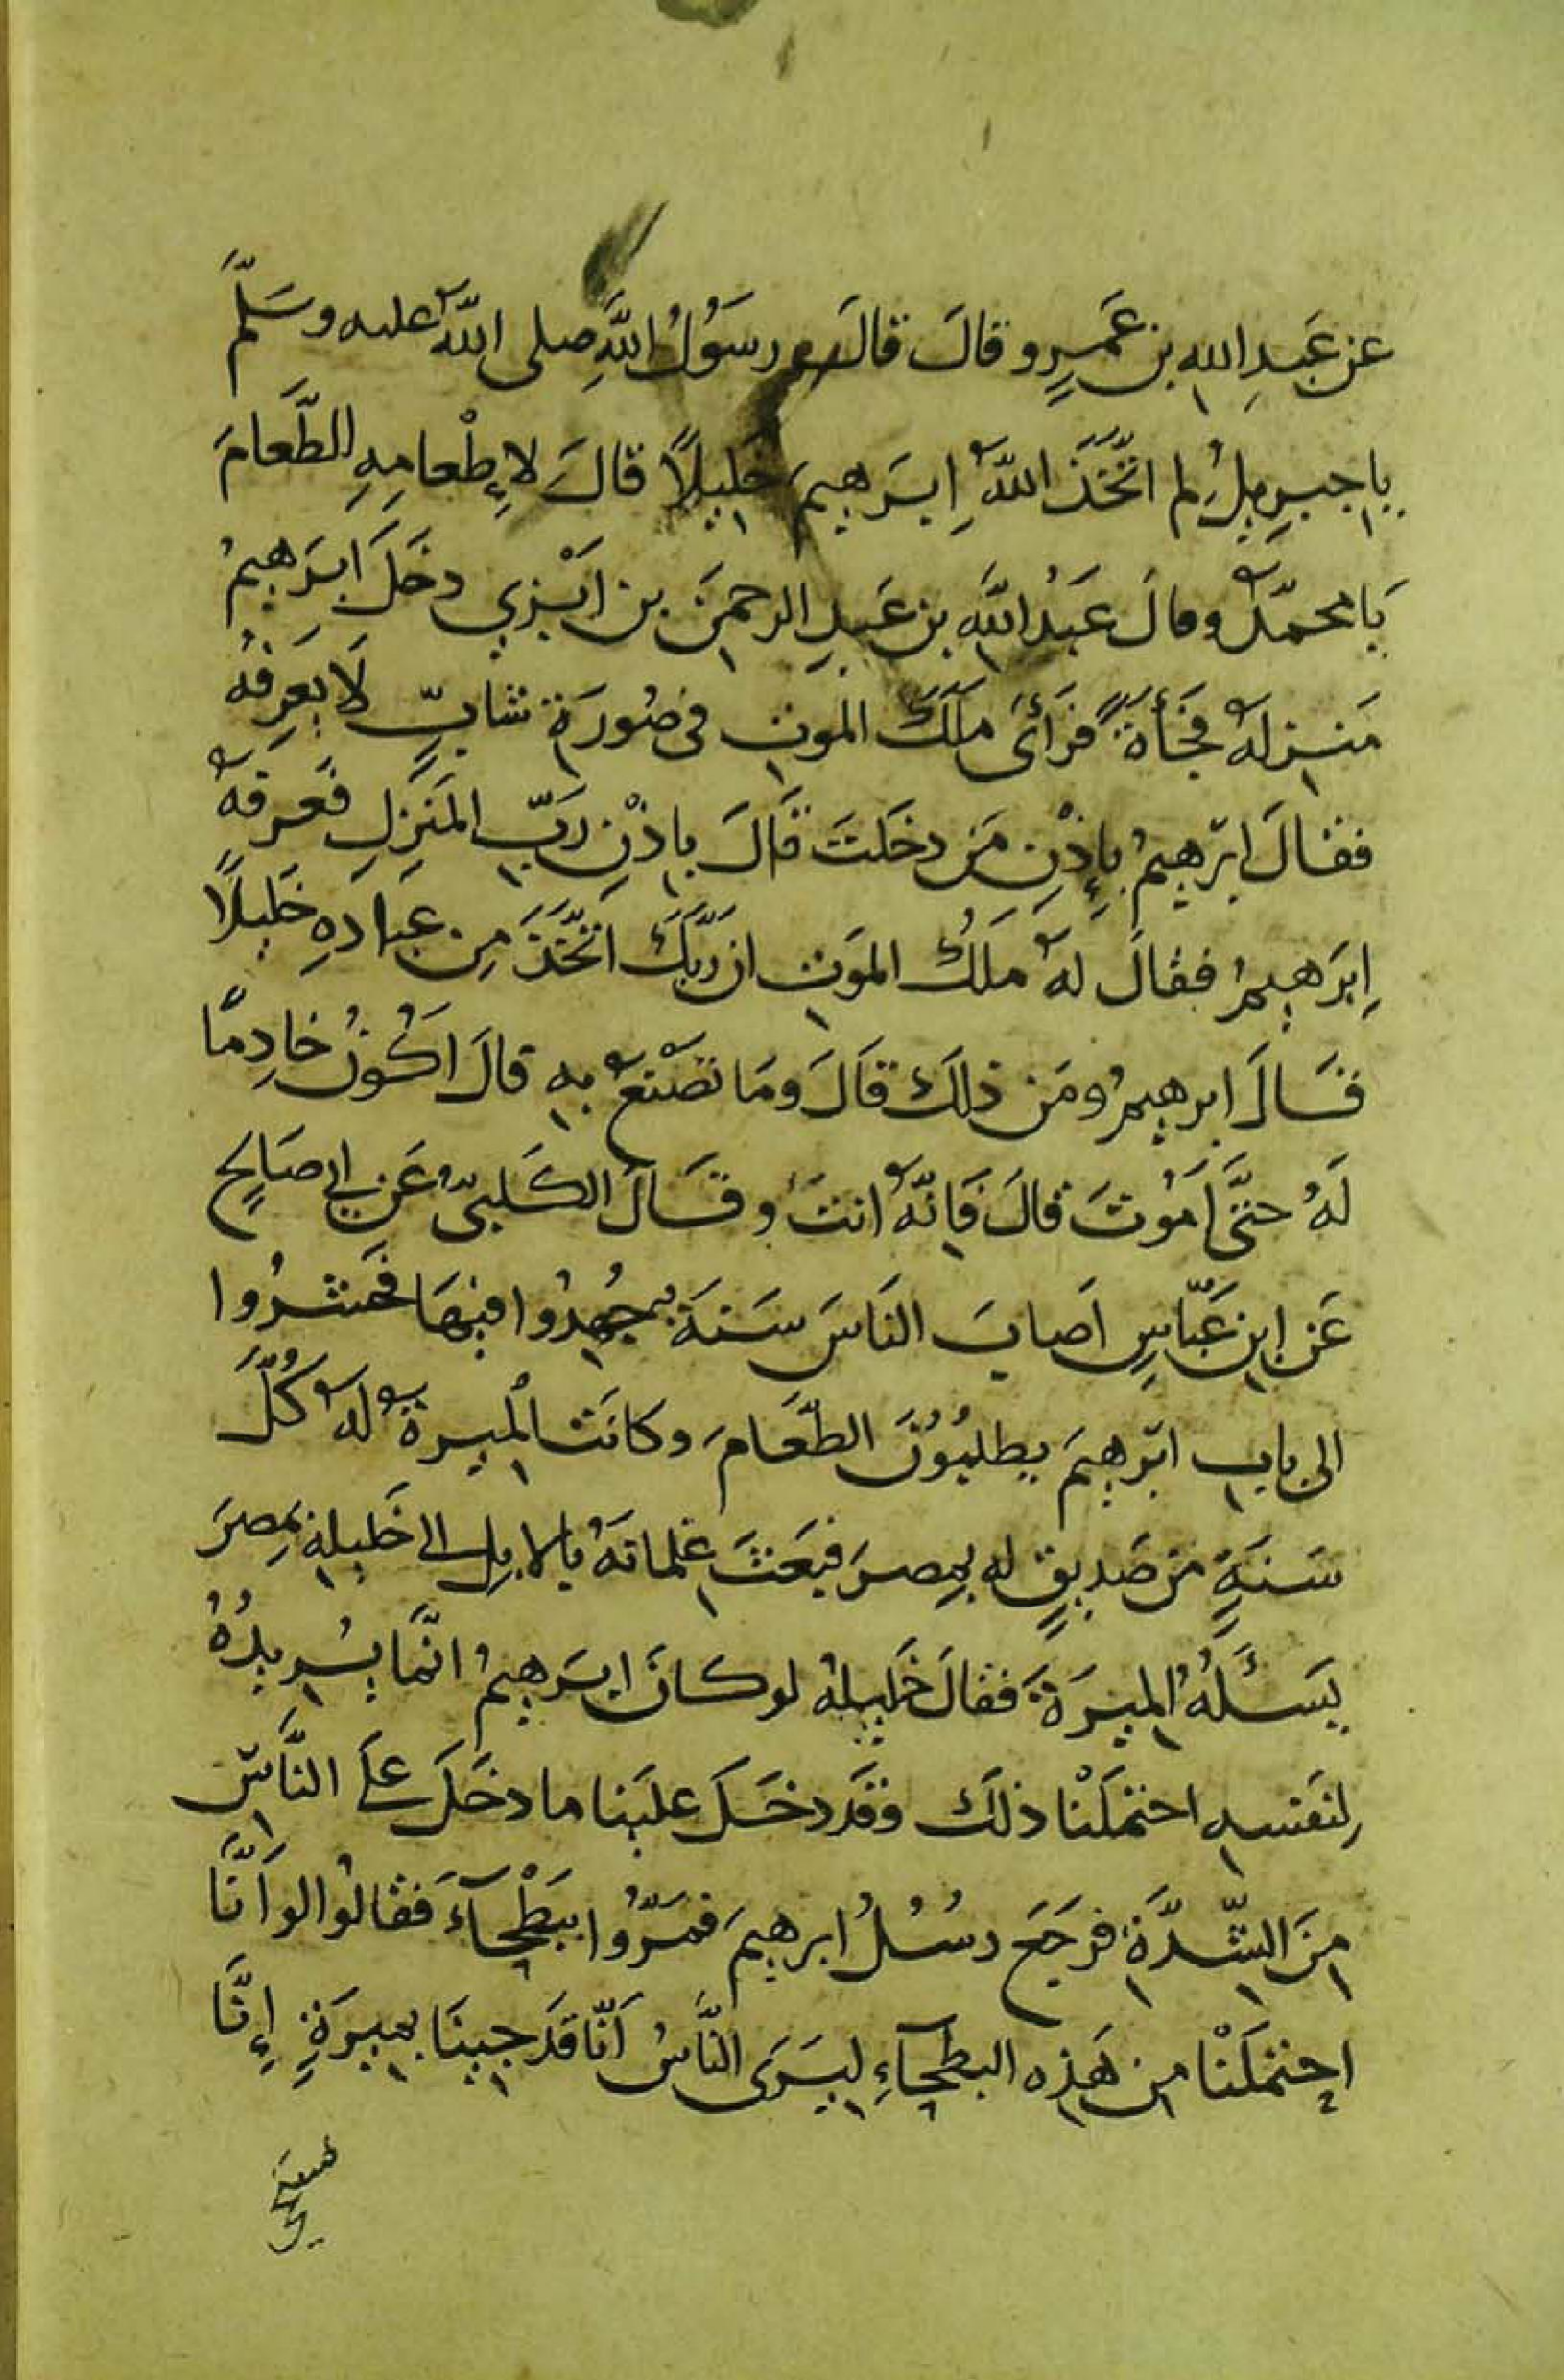 عن عَبدِ الله بن عَمرٍو قالَ قالَ رسَوُلُ اللَّهِ صلى اللّٰهُ عليه وسَلَّمَ
ياجبرِيلُ لِم اتَّخَذَ اللّٰهُ اِبرَهيمَ خَليلًا قالَ لإِطْعامِهِ الطَّعامَ
يَا محمّدُ وقالَ عَبْدُ اللَّهِ بن عَبدِ الرحمنَ بن ابْزي دخَلَ ابرَهيمُ
مَنزلهُ فجَأةً فرَأىَ ملَكَ الموتِ فى صُورَةِ شابٍّ لاَ يَعرِفُهُ
فقالَ ابرَهيمُ بإِذْنِ مَن دخَلتَ قَالَ باِذْنِ رَبِّ المَنزِلِ فَعرَفهُ
اِبرَهيمُ فقالَ لهُ ملَكُ الموَتِ ان رَبَّكَ اتَّخَذَ مِن عبادهِ خَليلًا
قَالَ ابرهيمُ ومَن ذلكَ قَالَ ومَا تصْنعُ بهِ قالَ اَكُونُ خادِمًا
لَهُ حتَّى اَموُتَ قالَ فَاِنّهُ انتَ وقَالَ الكَلبىُّ عَن ابى صَالحٍ
عَن ابنِ عَبّاسٍ اَصابَ النَاسَ سَنةَ جُهِدُوا فيهَا فحَشرُوا
الى بابِ ابرَهيمَ يطلبُوُنَ الطّعَامَ وكانَت الْميرةُ لهُ كُلَّ
سَنةٍ من صَديقٍ له بمِصرَ فبَعثَ غلمانهُ بالابِلِ الى خَليلهِ بمِصرَ
يَسئَلُهُ الميرَةَ فقالَ خَليلهُ لوكانَ ابرَهيمُ انَّما يُريدُهُ
لِنَفسهِ احتمَلْنا ذلكَ وقَد دخَلَ علَينا ما دخَلَ علَى النَّاسِ
مِنَ الشّدَّةِ فرَجَع رسُلُ ابرهيمَ فمَرّوُا ببَطْحآءَ فقالوُا لوَ اَنَّا
احتمَلْنا من هَذِه البطحآءِ ليَرَى النَّاسُ اَنّا قدَ جينَا بميرَةٍ إِنَّا